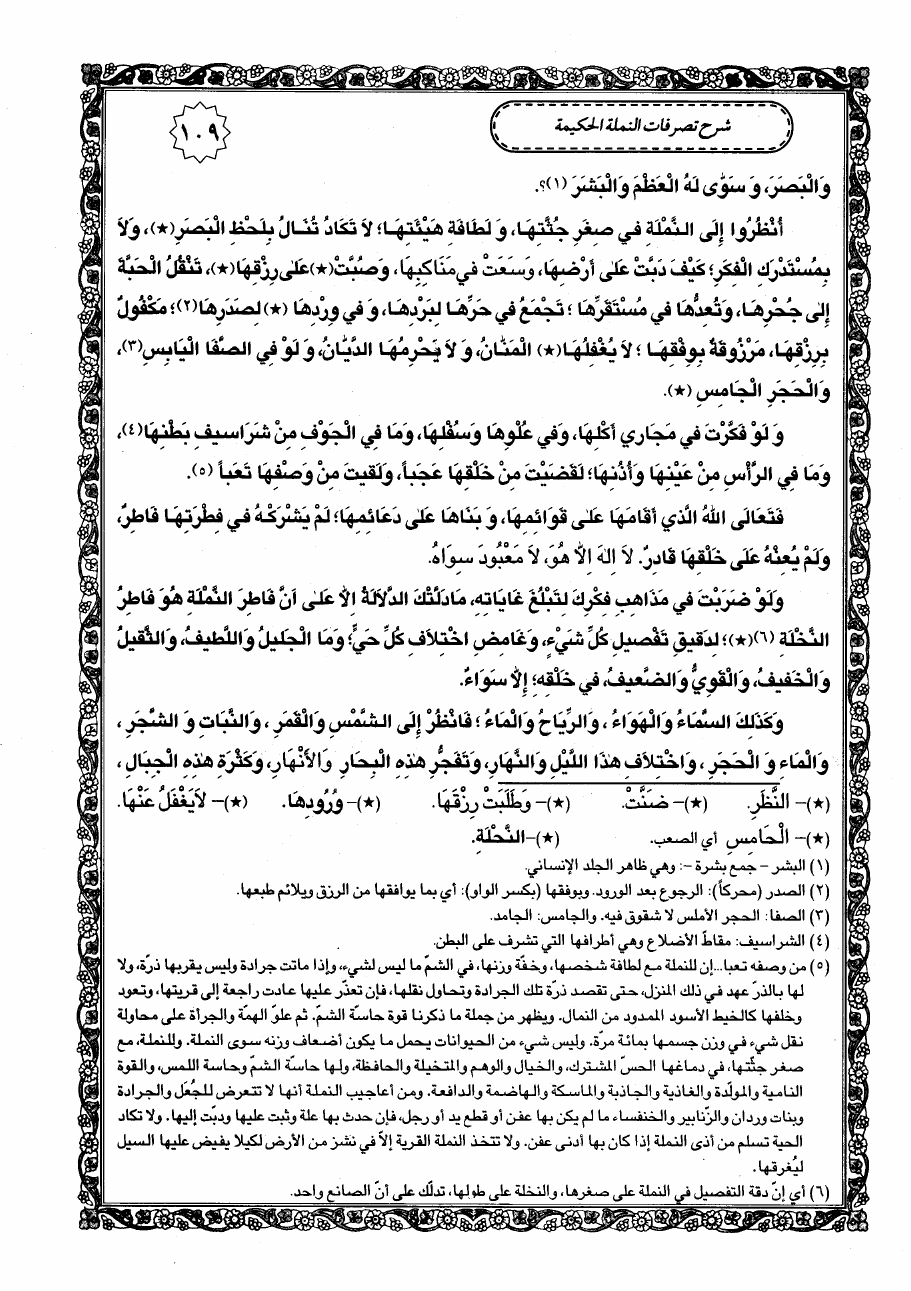 شرح تصرفات النملة الحكيمة
١٠٩
وَالْبَصَرَ، وَ سَوّٰى لَهُ الْعَظْمَ وَالْبَشَرَ (١)؟.
أُنْظُرُوا إِلَى النَّمْلَةِ في صِغَرِ جُثَّتِهَا، وَ لَطَافَةِ هَيْئَتِهَا؛ لاَ تَكَادُ تُنَالُ بِلَحْظِ الْبَصَرِ (★)، وَلاَ
بِمُسْتَدْرَكِ الْفِكَرِ؛ كَيْفَ دَبَّتْ عَلىٰ أَرْضِهَا، وَسَعَتْ في مَنَاكِبِهَا، وَصُبَّتْ (★) عَلىٰ رِزْقِهَا (★)، تَنْقُلُ الْحَبَّةَ
إِلىٰ جُحْرِهَا، وَتُعِدُّهَا في مُسْتَقَرِّهَا ؛ تَجْمَعُ في حَرِّهَا لِبَرْدِهَا، وَ في وِرْدِهَا (★) لِصَدَرِهَا (٢)؛ مَكْفُولٌ
بِرِزْقِهَا، مَرْزُوقَةٌ بِوِفْقِهَا ؛ لاَ يُغْفِلُهَا (★) الْمَنّٰانُ، وَ لاَ يَحْرِمُهَا الدَّيّٰانُ، وَ لَوْ في الصَّفَا الْيَابِسِ (٣)،
وَالْحَجَرِ الْجَامِسِ (★).
وَ لَوْ فَكَّرْتَ في مَجَاري أَكْلِهَا، وَفي عُلْوِهَا وَسُفْلِهَا، وَمَا في الْجَوْفِ مِنْ شَرَاسيفِ بَطْنِهَا (٤)،
وَمَا في الرَّأْسِ مِنْ عَيْنِهَا وَأُذُنِهَا؛ لَقَضَيْتَ مِنْ خَلْقِهَا عَجَباً، وَلَقيتَ مِنْ وَصْفِهَا تَعَباً (٥).
فَتَعَالَى اللهُ الَّذي أَقَامَهَا عَلىٰ قَوَائِمِهَا، وَ بَنَاهَا عَلىٰ دَعَائِمِهَا؛ لَمْ يَشْرَكْهُ في فِطْرَتِهَا فَاطِرٌ،
وَلَمْ يُعِنْهُ عَلىٰ خَلْقِهَا قَادِرٌ. لاَ إِلٰهَ إِلاّٰ هُوَ، لاَ مَعْبُودَ سِوَاهُ.
وَلَوْ ضَرَبْتَ في مَذَاهِبِ فِكْرِكَ لِتَبْلُغَ غَايَاتِهِ، مَا دَلَّتْكَ الدَّلاَلَةُ إِلاّٰ عَلىٰ أَنَّ فَاطِرَ النَّمْلَةِ هُوَ فَاطِرُ
النَّخْلَةِ (٦)(★)؛ لِدَقيقِ تَفْصيلِ كُلِّ شَيْءٍ، وَغَامِضِ اخْتِلاَفِ كُلِّ حَيٍّ؛ وَمَا الْجَليلُ وَاللَّطيفُ، وَالثَّقيلُ
وَالْخَفيفُ، وَالْقَوِيُّ وَالضَّعيفُ، في خَلْقِهِ؛ إِلاّٰ سَوَاءٌ.
وَكَذٰلِكَ السَّمَاءُ وَالْهَوَاءُ ، وَالرِّيَاحُ وَالْمَاءُ ؛ فَانْظُرْ إِلَى الشَّمْسِ وَالْقَمَرِ ، وَالنَّبَاتِ وَ الشَّجَرِ ،
وَالْمَاءِ وَ الْحَجَرِ ، وَاخْتِلاَفِ هٰذَا اللَّيْلِ وَالنَّهَارِ، وَتَفَجُّرِ هٰذِهِ الْبِحَارِ وَالأَنْهَارِ، وَكَثْرَةِ هٰذِهِ الْجِبَالِ ،
(★)- النَّظَرِ. (★)- ضَنَّتْ. (★)- وَطَلَبَتْ رِزْقَهَا. (★)- وُرُودِهَا. (★)- لاَ يَغْفَلُ عَنْهَا.
(★)- الْحَامِسِ أي الصعب. (★)- النَّحْلَةِ.
(١) البشر - جمع بشرة -: وهي ظاهر الجلد الإنساني.
(٢) الصدر (محركاً): الرجوع بعد الورود. وبوفقها (بكسر الواو): أي بما يوافقها من الرزق ويلائم طبعها.
(٣) الصفا: الحجر الأملس لا شقوق فيه. والجامس: الجامد.
(٤) الشراسيف: مقاطّ الأضلاع وهي أطرافها التي تشرف على البطن.
(٥) من وصفه تعبا...إن للنملة مع لطافة شخصها، وخفّة وزنها، في الشمّ ما ليس لشيء، وإذا ماتت جرادة وليس يقربها ذرّة، ولا
لها بالذرّ عهد في ذلك المنزل، حتى تقصد ذرّة تلك الجرادة وتحاول نقلها، فإن تعذّر عليها عادت راجعة إلى قريتها، وتعود
وخلفها كالخيط الأسود الممدود من النمال. ويظهر من جملة ما ذكرنا قوة حاسّة الشمّ. ثم علوّ الهمّة والجرأة على محاولة
نقل شيء في وزن جسمها بمائة مرّة. وليس شيء من الحيوانات يحمل ما يكون أضعاف وزنه سوى النملة. وللنملة، مع
صغر جثّتها، في دماغها الحسّ المشترك، والخيال والوهم والمتخيلة والحافظة، ولها حاسّة الشمّ وحاسة اللمس، والقوة
النامية والمولّدة والغاذية والجاذبة والماسكة والهاضمة والدافعة. ومن أعاجيب النملة أنها لا تتعرض للجُعَل والجرادة
وبنات وردان والزّنابير والخنفساء ما لم يكن بها عفن أو قطع يد أو رجل، فإن حدث بها علة وثبت عليها ودبّت إليها. ولا تكاد
الحية تسلم من أذى النملة إذا كان بها أدنى عفن. ولا تتخذ النملة القرية إلاّ في نشز من الأرض لكيلا يفيض عليها السيل
ليُغرقها.
(٦) أي إنّ دقة التفصيل في النملة على صغرها، والنخلة على طولها، تدلّك على أنّ الصانع واحد.